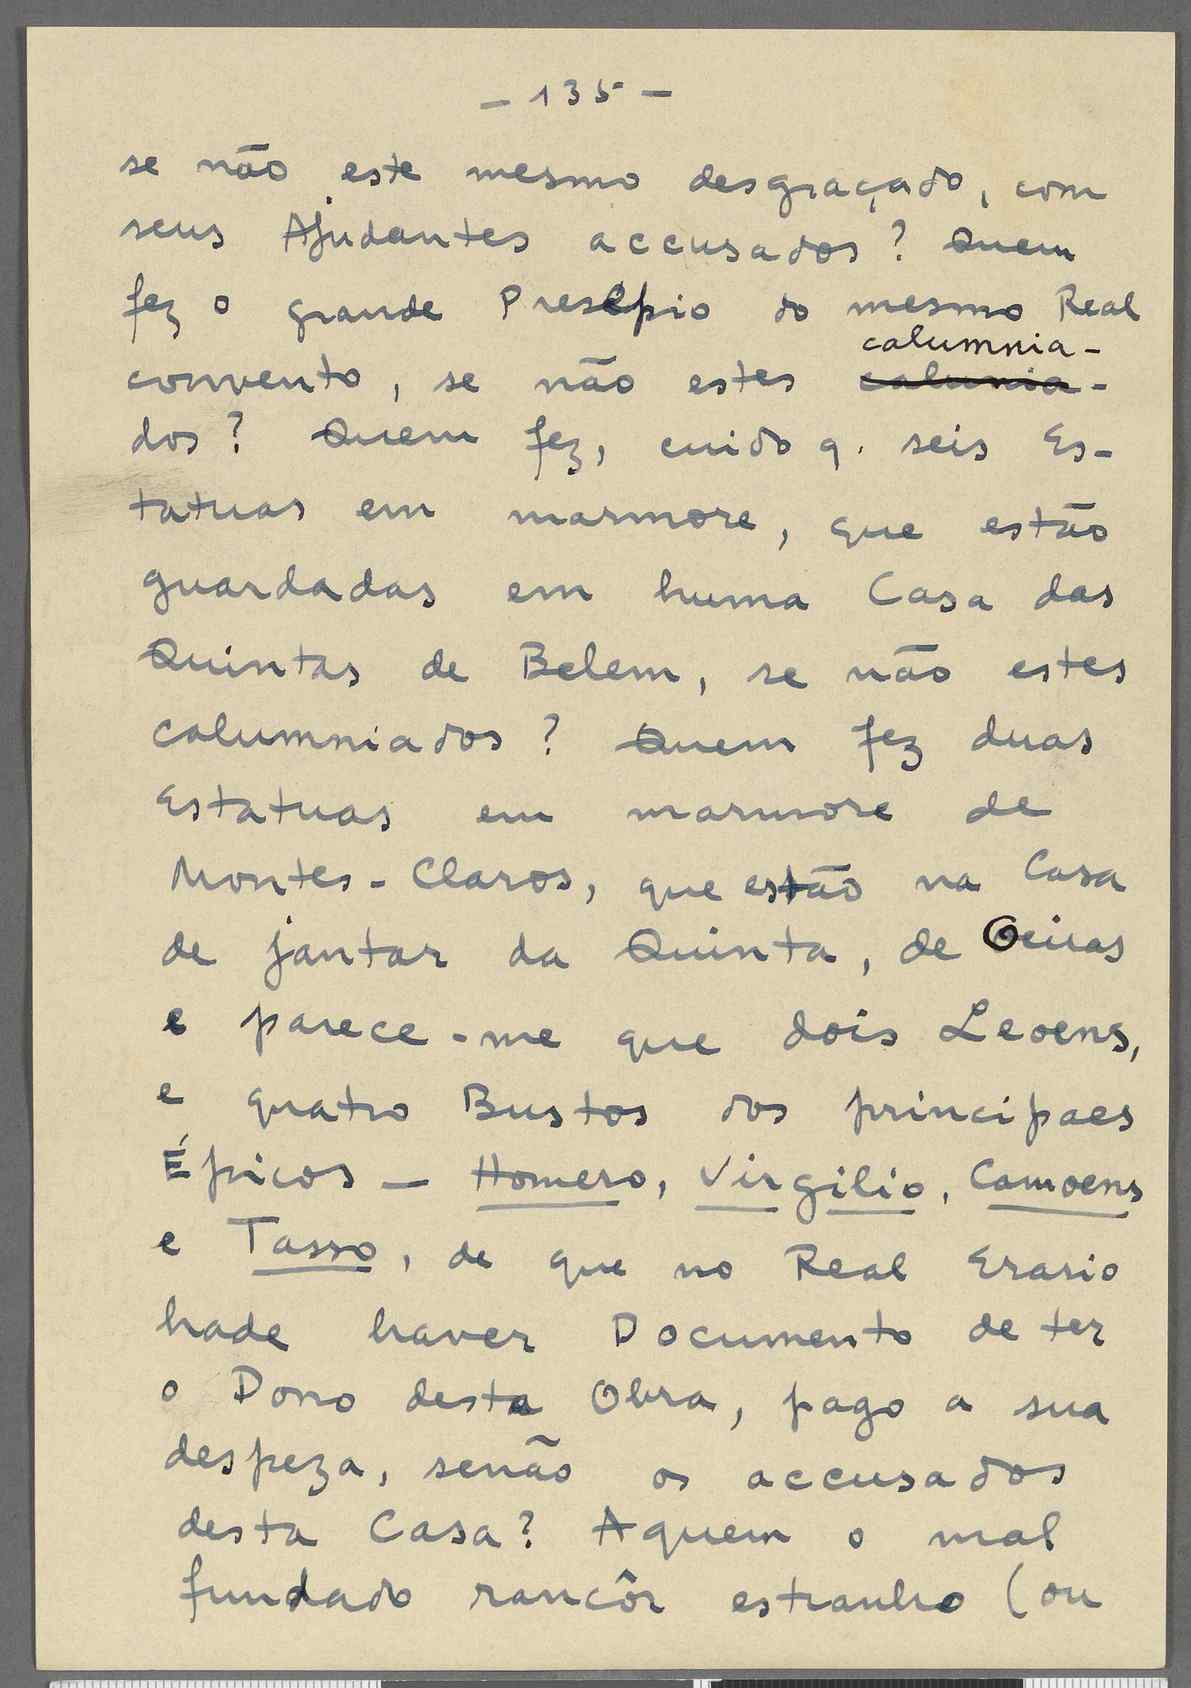 - 135 -
se não este mesmo desgraçado, com
seus Ajudantes accusados? Quem
fez o grande Presepio do mesmo Real
columnia-
convento, se não estes calunia-
dos? Quem fez, cuido q. seis Es-
tatuas em marmore, que estão
guardadas em huma Casa das
Quintas de Belem, se não estes
columniados? Quem fez duas
Estatuas em marmore de
Montes-Claros, que estão na Casa
de jantar da Quinta, de Oeiras
e parece-me que dois Leoens,
e quatro Bustos dos principaes
Épicos — Homero, Virgilio, Camoens
e Tasso, de que no Real Erario
hade haver Documento de ter
o Dono desta Obra, pago a sua
despeza, senão os accusados
desta Casa? Aquem o mal
fundado rancôr estranho (ou